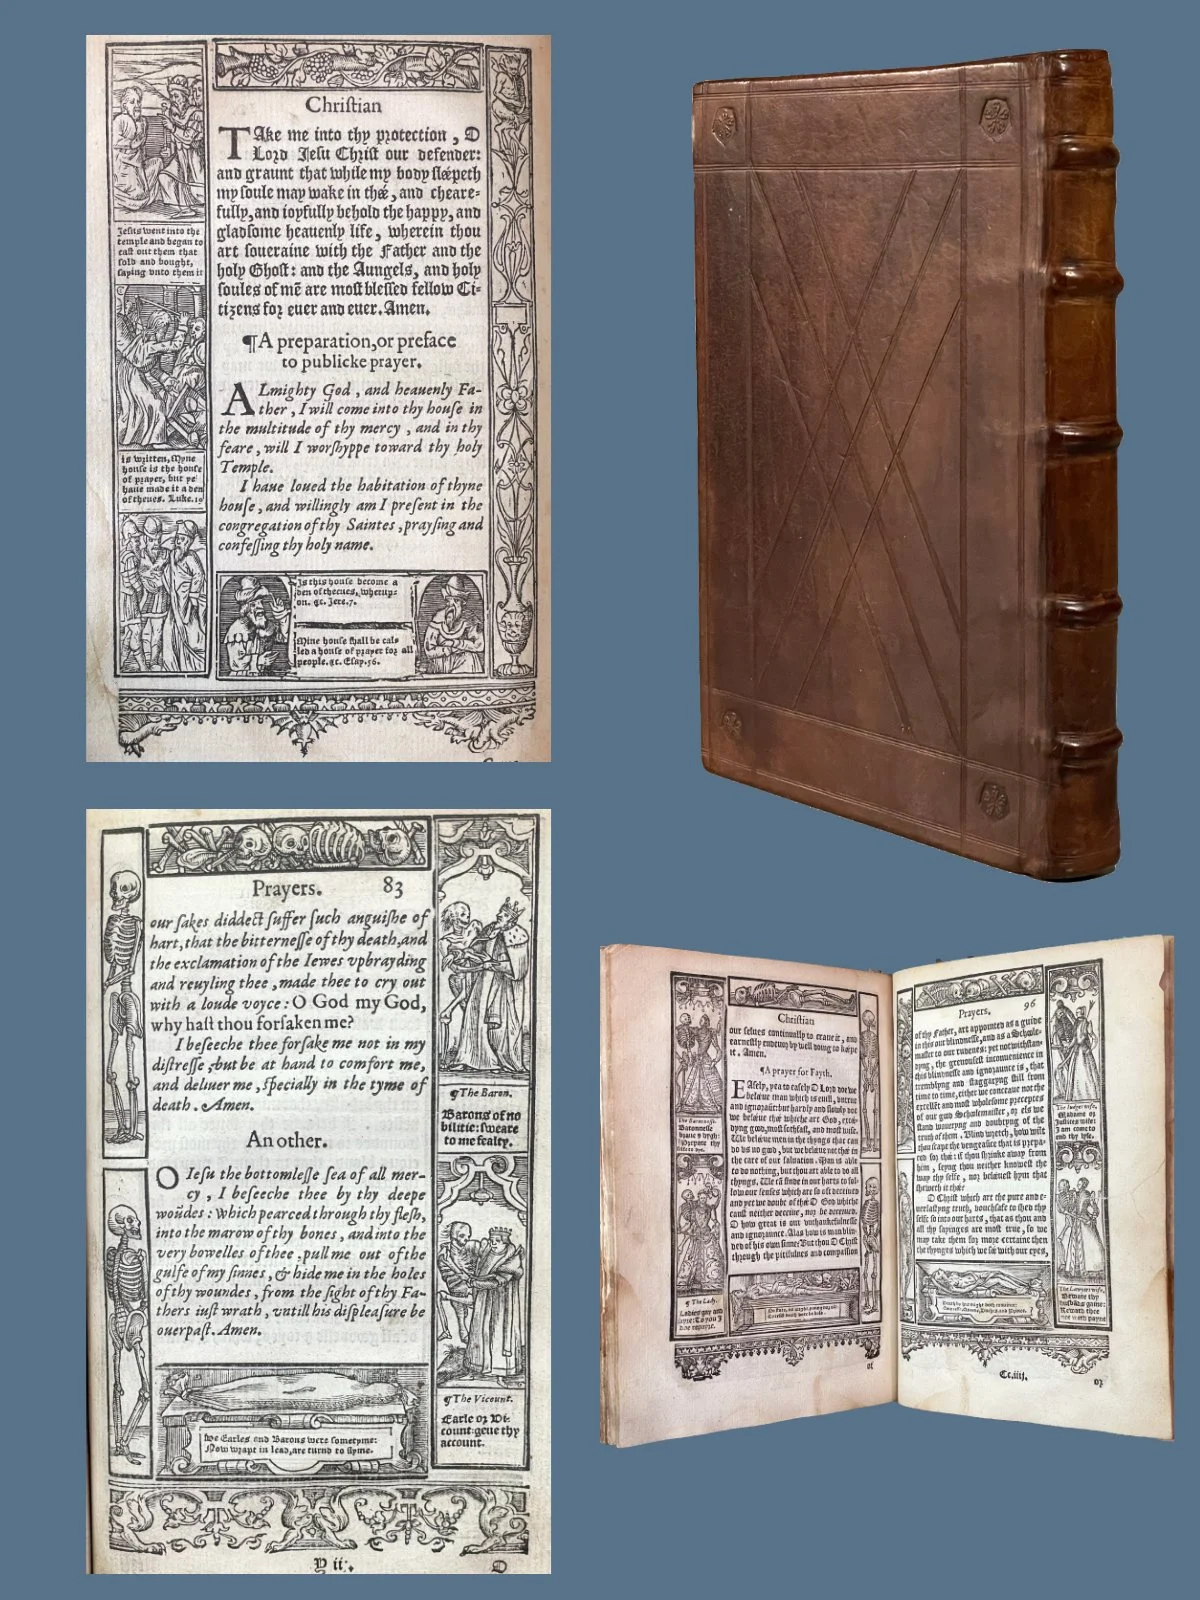 Christian
TAke me into thy protection, O
Lord Jesu Christ our defender:
and graunt that while my body slepeth
my soule may wake in thé, and cheare-
fully, and ioyfully behold the happy, and
gladsome heauenly life, wherein thou
art soueraine with the Father and the
holy Ghost: and the Aungels, and holy
soules of mē are most blessed fellow Ci-
tizens for euer and euer. Amen.
¶A preparation, or preface
to publicke prayer.
ALmighty God, and heauenly Fa-
ther, I will come into thy house in
the multitude of thy mercy, and in thy
feare, will I worshyppe toward thy holy
Temple.
I haue loued the habitation of thyne
house, and willingly am I present in the
congregation of thy Saintes, praysing and
confessing thy holy name.
Jesus went into the
temple and began to
cast out them that
sold and bought,
saying vnto them it
is written, Myne
house is the house
of prayer, but ye
haue made it a den
of theues. Luke. 19
Is this house become a
den of theeues, wherup-
on. &c. Jere. 7.
Mine house shall be cal-
led a house of prayer for all
people. &c. Esay. 56.
Prayers. 83
our sakes diddest suffer such anguishe of
hart, that the bitternesse of thy death, and
the exclamation of the Iewes vpbrayding
and reuyling thee, made thee to cry out
with a loude voyce: O God my God,
why hast thou forsaken me?
I beseeche thee forsake me not in my
distresse, but be at hand to comfort me,
and deliuer me, specially in the tyme of
death. Amen.
An other.
O Iesu the bottomlesse sea of all mer-
cy, I beseeche thee by thy deepe
woūdes: which pearced through thy flesh,
into the marow of thy bones, and into the
very bowelles of thee, pull me out of the
gulfe of my sinnes, & hide me in the holes
of thy woundes, from the sight of thy Fa-
thers iust wrath, vntill his displeasure be
ouerpast. Amen.
¶The Baron.
Barons of no
bilitie: sweare
to me fealty.
¶The Vicount.
Earle or Vi-
count: geue thy
account.
We Earles and Barons were sometyme:
Now wrapt in lead, are turnd to slyme.
Y ii. O
Christian
our selues continually to craue it, and
earnestly endeuor by well doing to kéepe
it. Amen.
¶A prayer for Fayth.
EAsely, yea to easely O Lord doe we
beleue man which is euill, vntrue
and ignoraūt: but hardly and slowly doe
we beleue thé which are God, excé-
dyng good, most fethfull, and most wise.
We beleue men in the thyngs that can
do vs no good, but we beleue not thé in
the care of our saluation. Man is able
to do nothing, but thou art able to do all
thyngs. We cā finde in our harts to fol-
low our senses which are so oft deceiued
and yet we doubt of thé O God which
canst neither deceiue, nor be deceiued.
O how great is our vnthankefulnesse
and ignoraunce. Alas how is man blin-
ded of his own sinne: But thou O Christ
through thy pitifulnes and compassion
¶The Lady.
Ladies gay and
Prayers. 96
of thy Father, art appointed as a guide
in this our blindnesse, and as a Schole-
master to our rudenes: yet notwithstan-
dyng, the greeuousest inconuenience in
this blindnesse and ignoraunce is, that
tremblyng and staggaryng still from
time to time, either we conceaue not the
excellēt and most wholesome preceptes
of our good Scholemaister, or els we
stand wauering and doubtyng of the
truth of them. Blind wretch, how wilt
thou scape the vengeance that is prepa-
red for thé: if thou shrinke away from
him, seyng thou neither knowest the
way thy selfe, nor beleuest hym that
sheweth it thée
O Christ which art the pure and e-
uerlastyng truth, vouchsafe to shed thy
selfe so into our harts, that as thou and
all thy sayinges are most true, so we
may take them for more certaine then
the thynges which we sée with our eyes,
The Iudges wife.
Madame or
Justices wife:
I am come to
end thy lyfe.
The Lawyers wife.
Beware thy
husbās gaine:
Cc.iiij. or